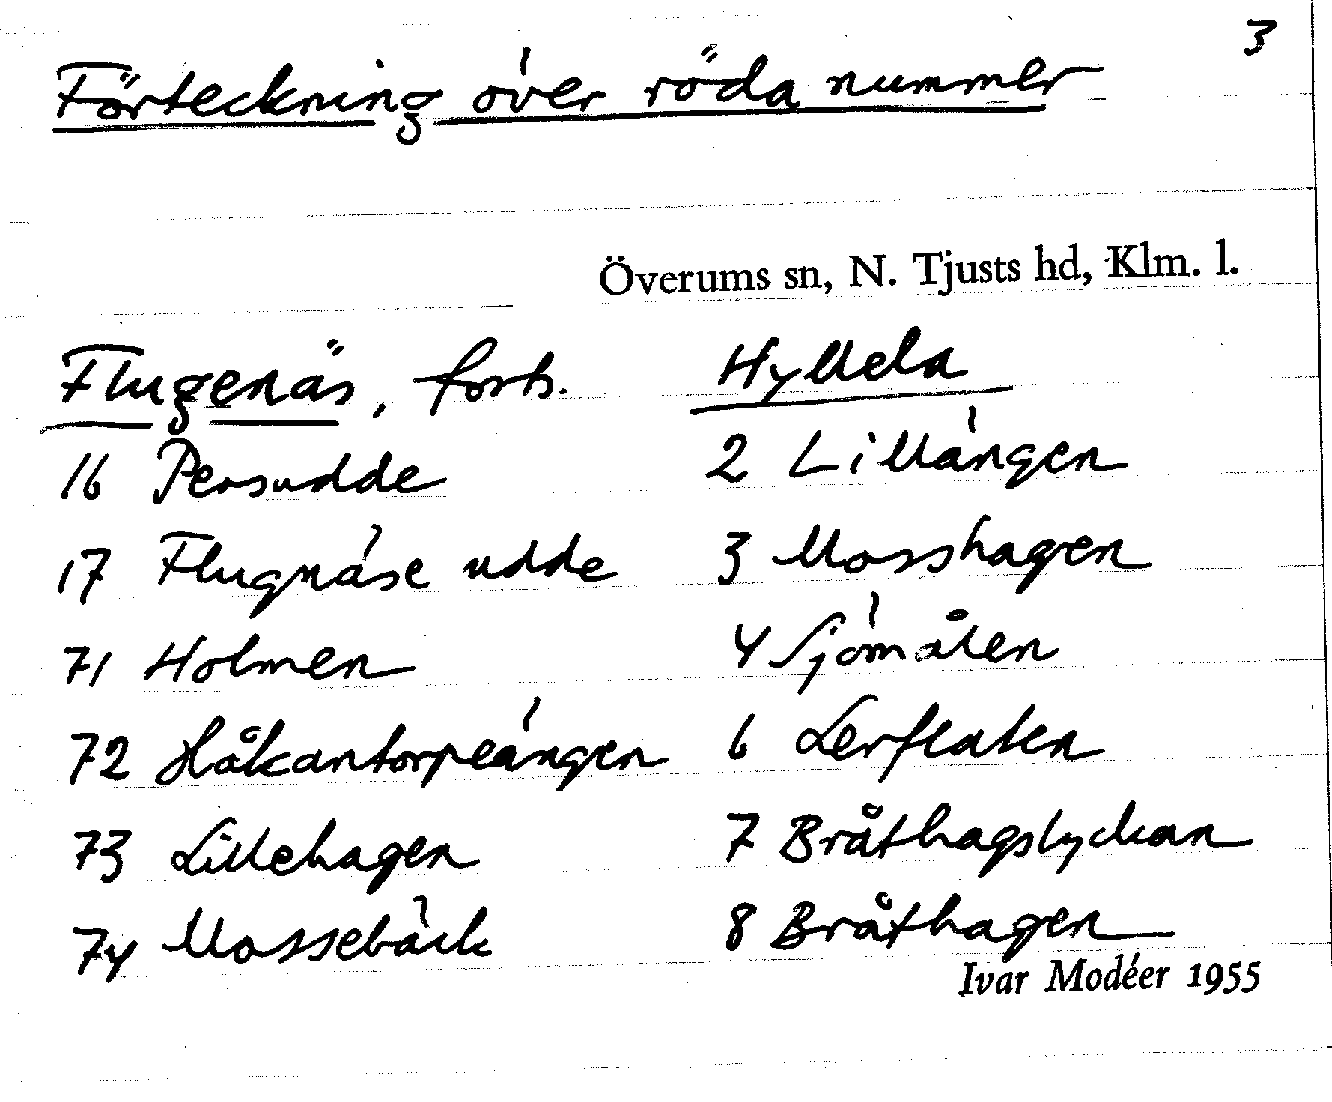 3
Förteckning över röda nummer
Överums sn, N. Tjusts hd, Klm. l.
Flugenäs, forts.
16 Persudde
17 Flugnäse udde
71 Holmen
72 Håkantorpeängen
73 Lillehagen
74 Mossebäck
Hyllela
2 Lillängen
3 Mosshagen
4 Sjömålen
6 Lerflaten
7 Bråthagslyckan
8 Bråthagen
Ivar Modéer 1955